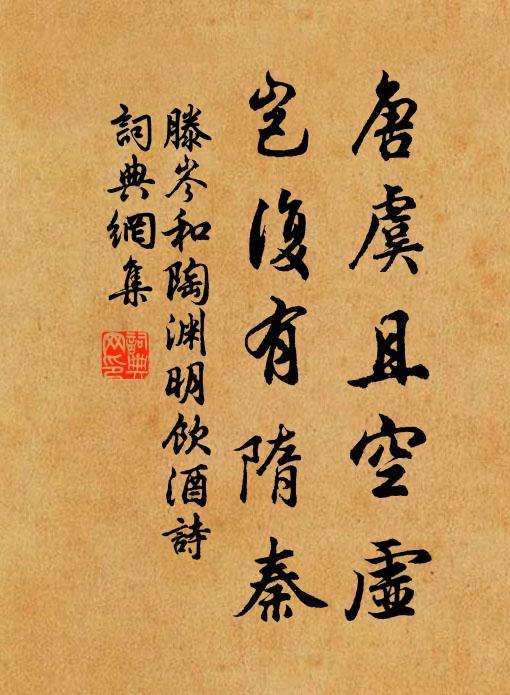 唐虞且空虛
豈復有隋秦
滕岑和陶渊明飲酒詩
詞典網集
詞典
网印